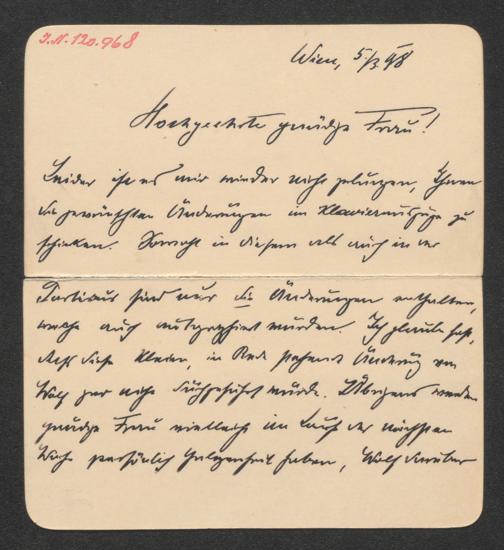 I.N. 120.968
Wien, 5./3 98
Hochgeehrte gnädige Frau!
Leider ist es mir wieder nicht gelungen, Ihnen
die gewünschten Änderungen im Klavierauszuge zu
schicken. Sowohl in diesem als auch in der
Partitur sind nur die Änderungen enthalten,
welche auch autographiert wurden. Ich glaube fast,
daß diese kleine, in Rede stehende Änderung von
Wolf gar nicht durchgeführt wurde. Übrigens werden
gnädige Frau vielleicht im Laufe der nächsten
Woche persönlich Gelegenheit haben, Wolf darüber